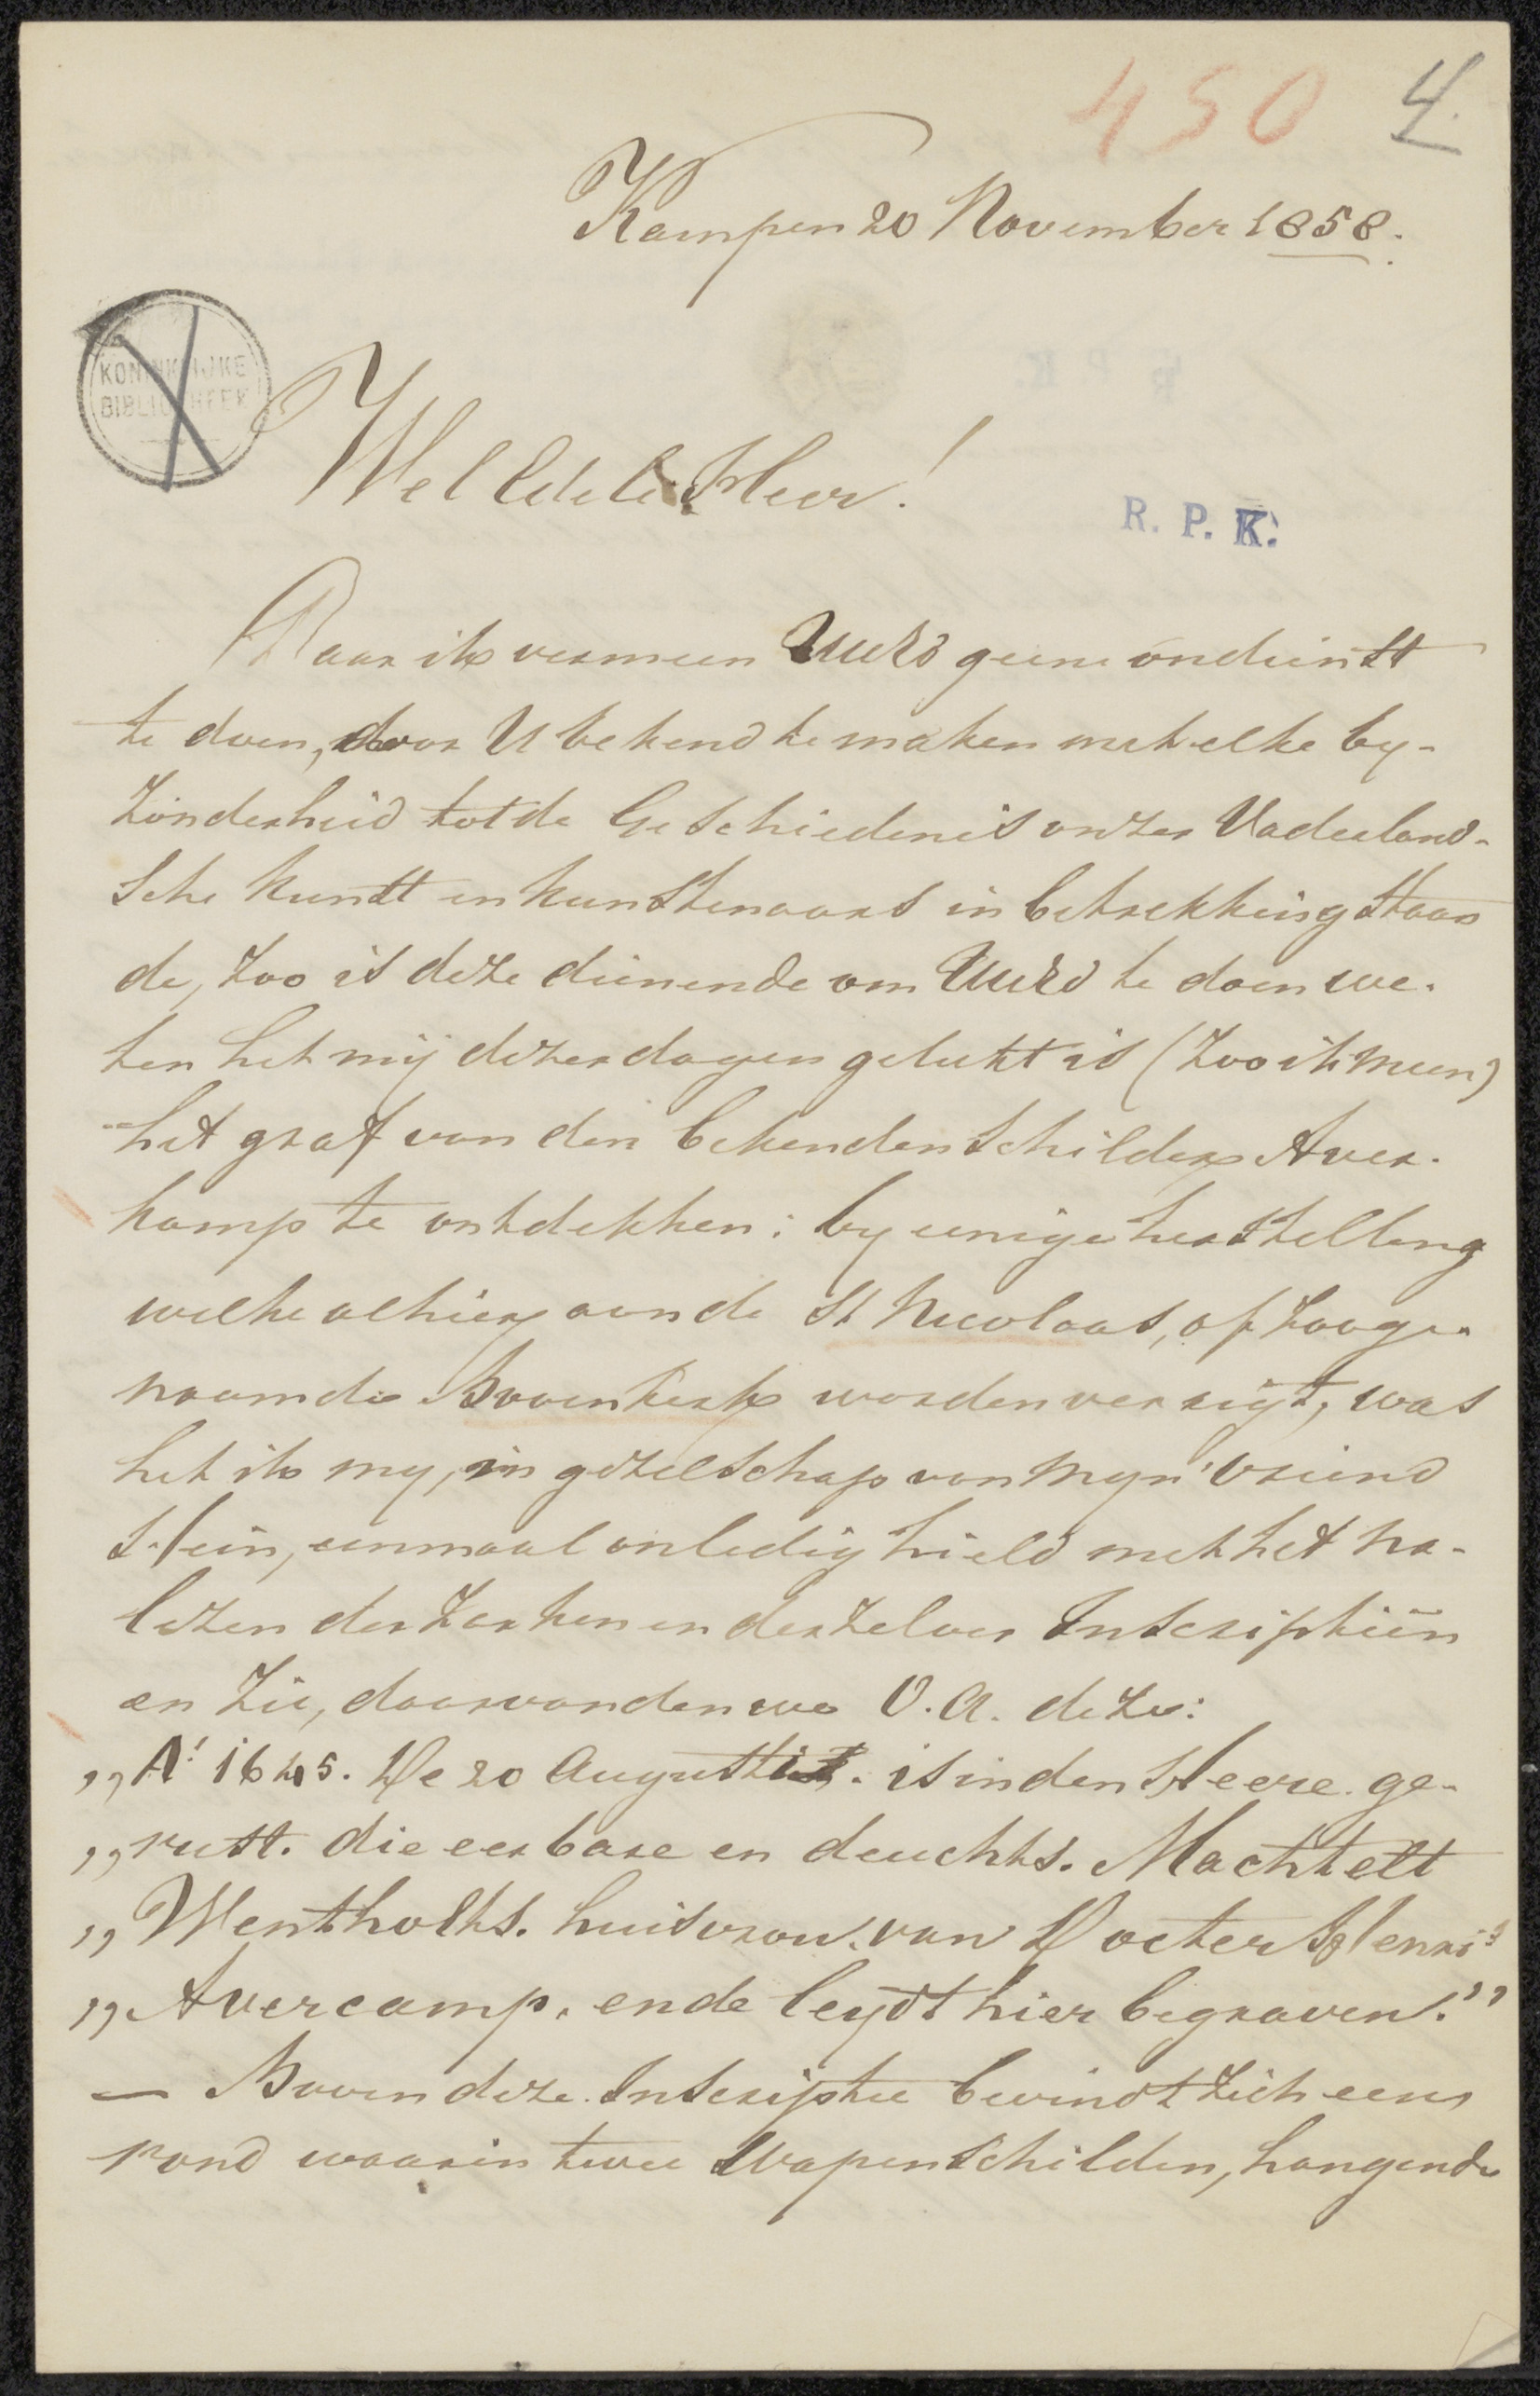 450 4.
Kampen 20 November 1858.
KONINKLIJKE
BIBLIOTHEEK
Wel Edele Heer!
R. P. K.
Daar ik vermeen UwEd geene ondienst
te doen, door U bekend te maken met elke by-
zonderheid tot de Geschiedenis onzer Vaderland-
sche kunst en kunstenaars in betrekking staan
de, zoo is deze dienende om UwEd te doen we-
ten het mij dezer dagen gelukt is (zoo ik meen)
het graf van den bekenden schilder Aver-
kamp te ontdekken: by eenige herstelling
welke alhier aan de St Nicolaas, of zooge-
naamde Bovenkerk worden verrigt, was
het ik my, in gezelschap van myn' vriend
Stein, eenmaal onledig hield met het na-
lezen der zarken en derzelver Inscriptiën
en zie, daar vonden we O.A. deze:
„A! 1645. De 20 Augusti. is in den Heere. ge-
„rust. die eerbare en deuchts. Machtelt
„Wentholts. huisvrou. van Docter Henri:
„Avercamp. ende leydt hier begraven."
— Boven deze Inscriptie bevindt zich een
rond waarin twee wapenschilden, hangende